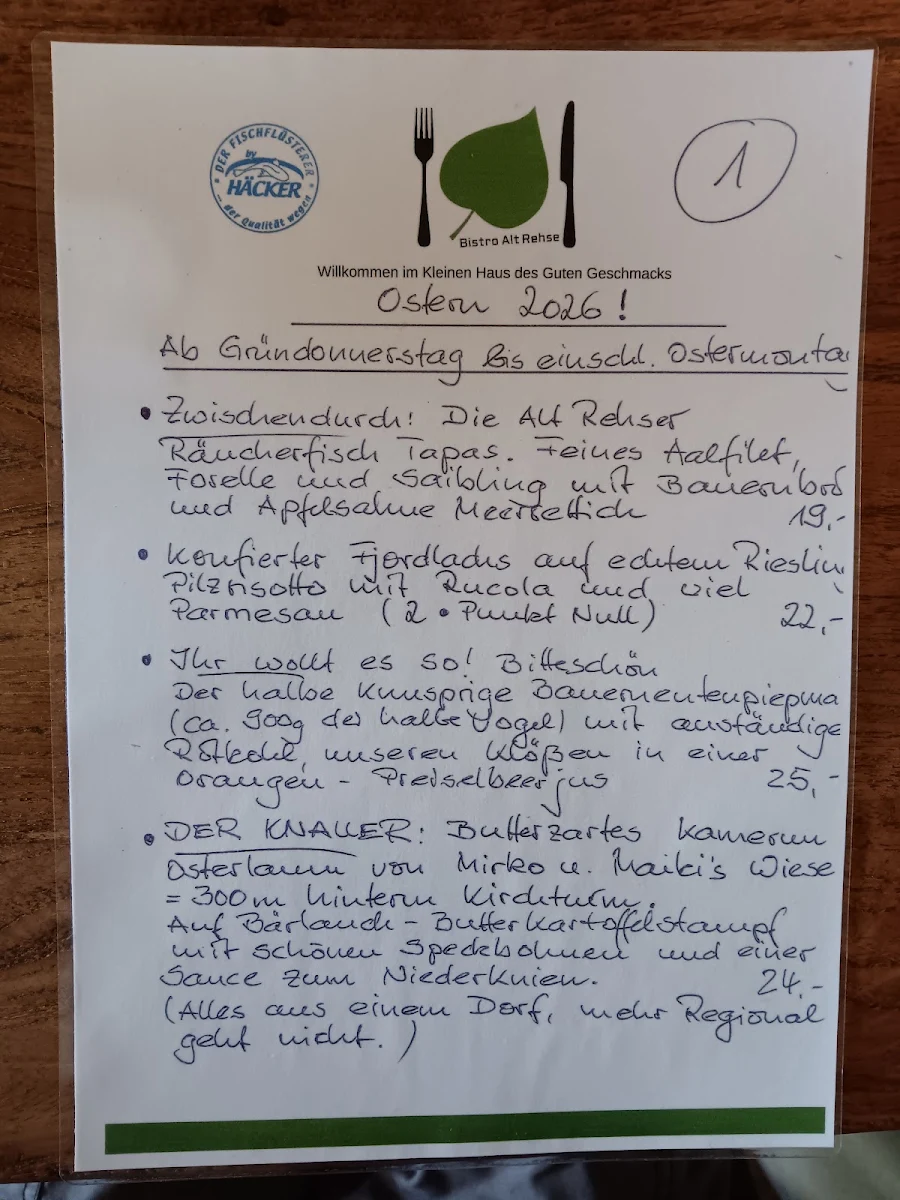 DER FISCHFLÜSTERER
by
HÄCKER
... der Qualität wegen
1
Bistro Alt Rehse
Willkommen im Kleinen Haus des Guten Geschmacks
Ostern 2026!
Ab Gründonnerstag bis einschl. Ostermonta
• Zwischendurch! Die Alt Rehser
Räucherfisch Tapas. Feines Aalfilet,
Forelle und Saibling mit Bauernbro
und Apfelsahne Meerrettich 19,-
• Konfierter Fjordlachs auf echtem Rieslin
Pilzrisotto mit Rucola und viel
Parmesan (2 • Punkt Null) 22,-
• Ihr wollt es so! Bitteschön
Der halbe Knusprige Bauernentenpiepma
(ca. 900g der halbe Vogel) mit anständige
Rotkohl, unseren Klößen in einer
Orangen - Preiselbeerjus 25,-
• DER KNALLER: Butterzartes Kamerun
Osterlamm von Mirko u. Maiki's Wiese
= 300m hinterm Kirchturm.
Auf Bärlauch - Butterkartoffelstampf
mit schönen Speckbohnen und einer
Sauce zum Niederknien. 24,-
(Alles aus einem Dorf, mehr Regional
geht nicht.)